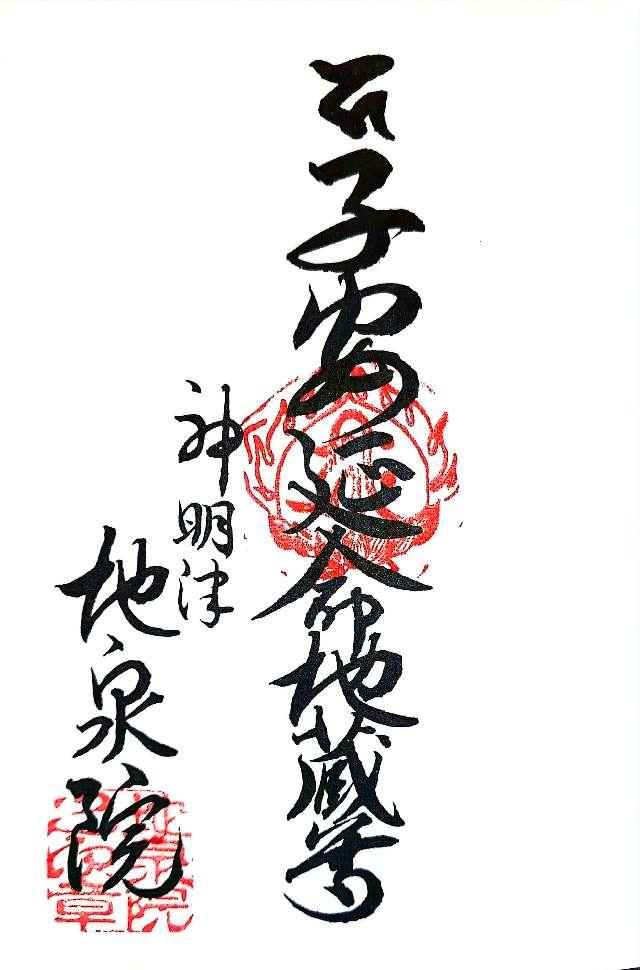 石子安延命地蔵尊
神明津
地泉院